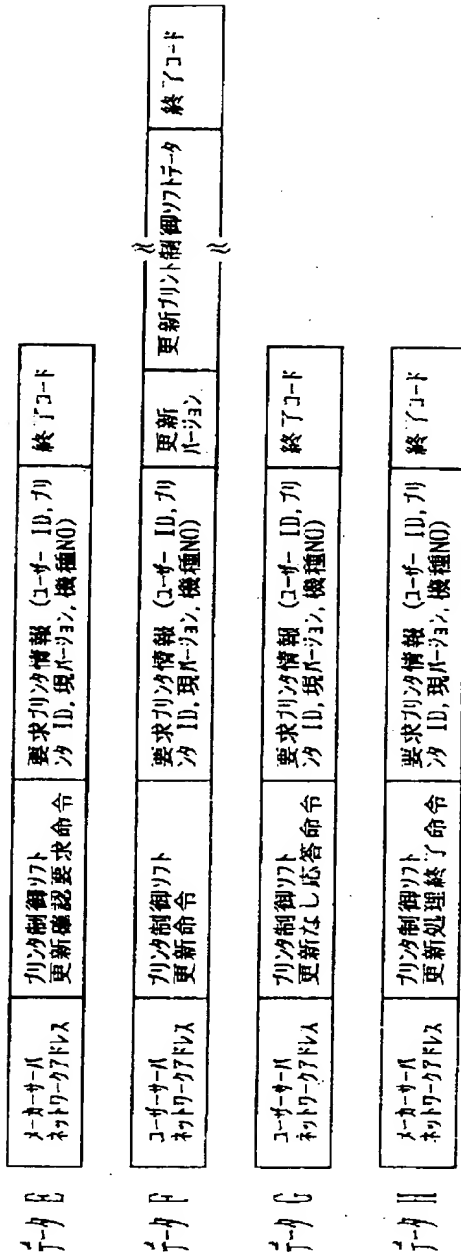 データ E
メーカーサーバ
ネットワークアドレス
プリンタ制御ソフト
更新確認要求命令
要求プリンタ情報 (ユーザー ID, プリ
ンタ ID, 現バージョン, 機種NO)
終了コード
データ F
ユーザーサーバ
ネットワークアドレス
プリンタ制御ソフト
更新命令
要求プリンタ情報 (ユーザー ID, プリ
ンタ ID, 現バージョン, 機種NO)
更新
バージョン
更新プリント制御ソフトデータ
終了コード
データ G
ユーザーサーバ
ネットワークアドレス
プリンタ制御ソフト
更新なし応答命令
要求プリンタ情報 (ユーザー ID, プリ
ンタ ID, 現バージョン, 機種NO)
終了コード
データ H
メーカーサーバ
ネットワークアドレス
プリンタ制御ソフト
更新処理終了命令
要求プリンタ情報 (ユーザー ID, プリ
ンタ ID, 現バージョン, 機種NO)
終了コード